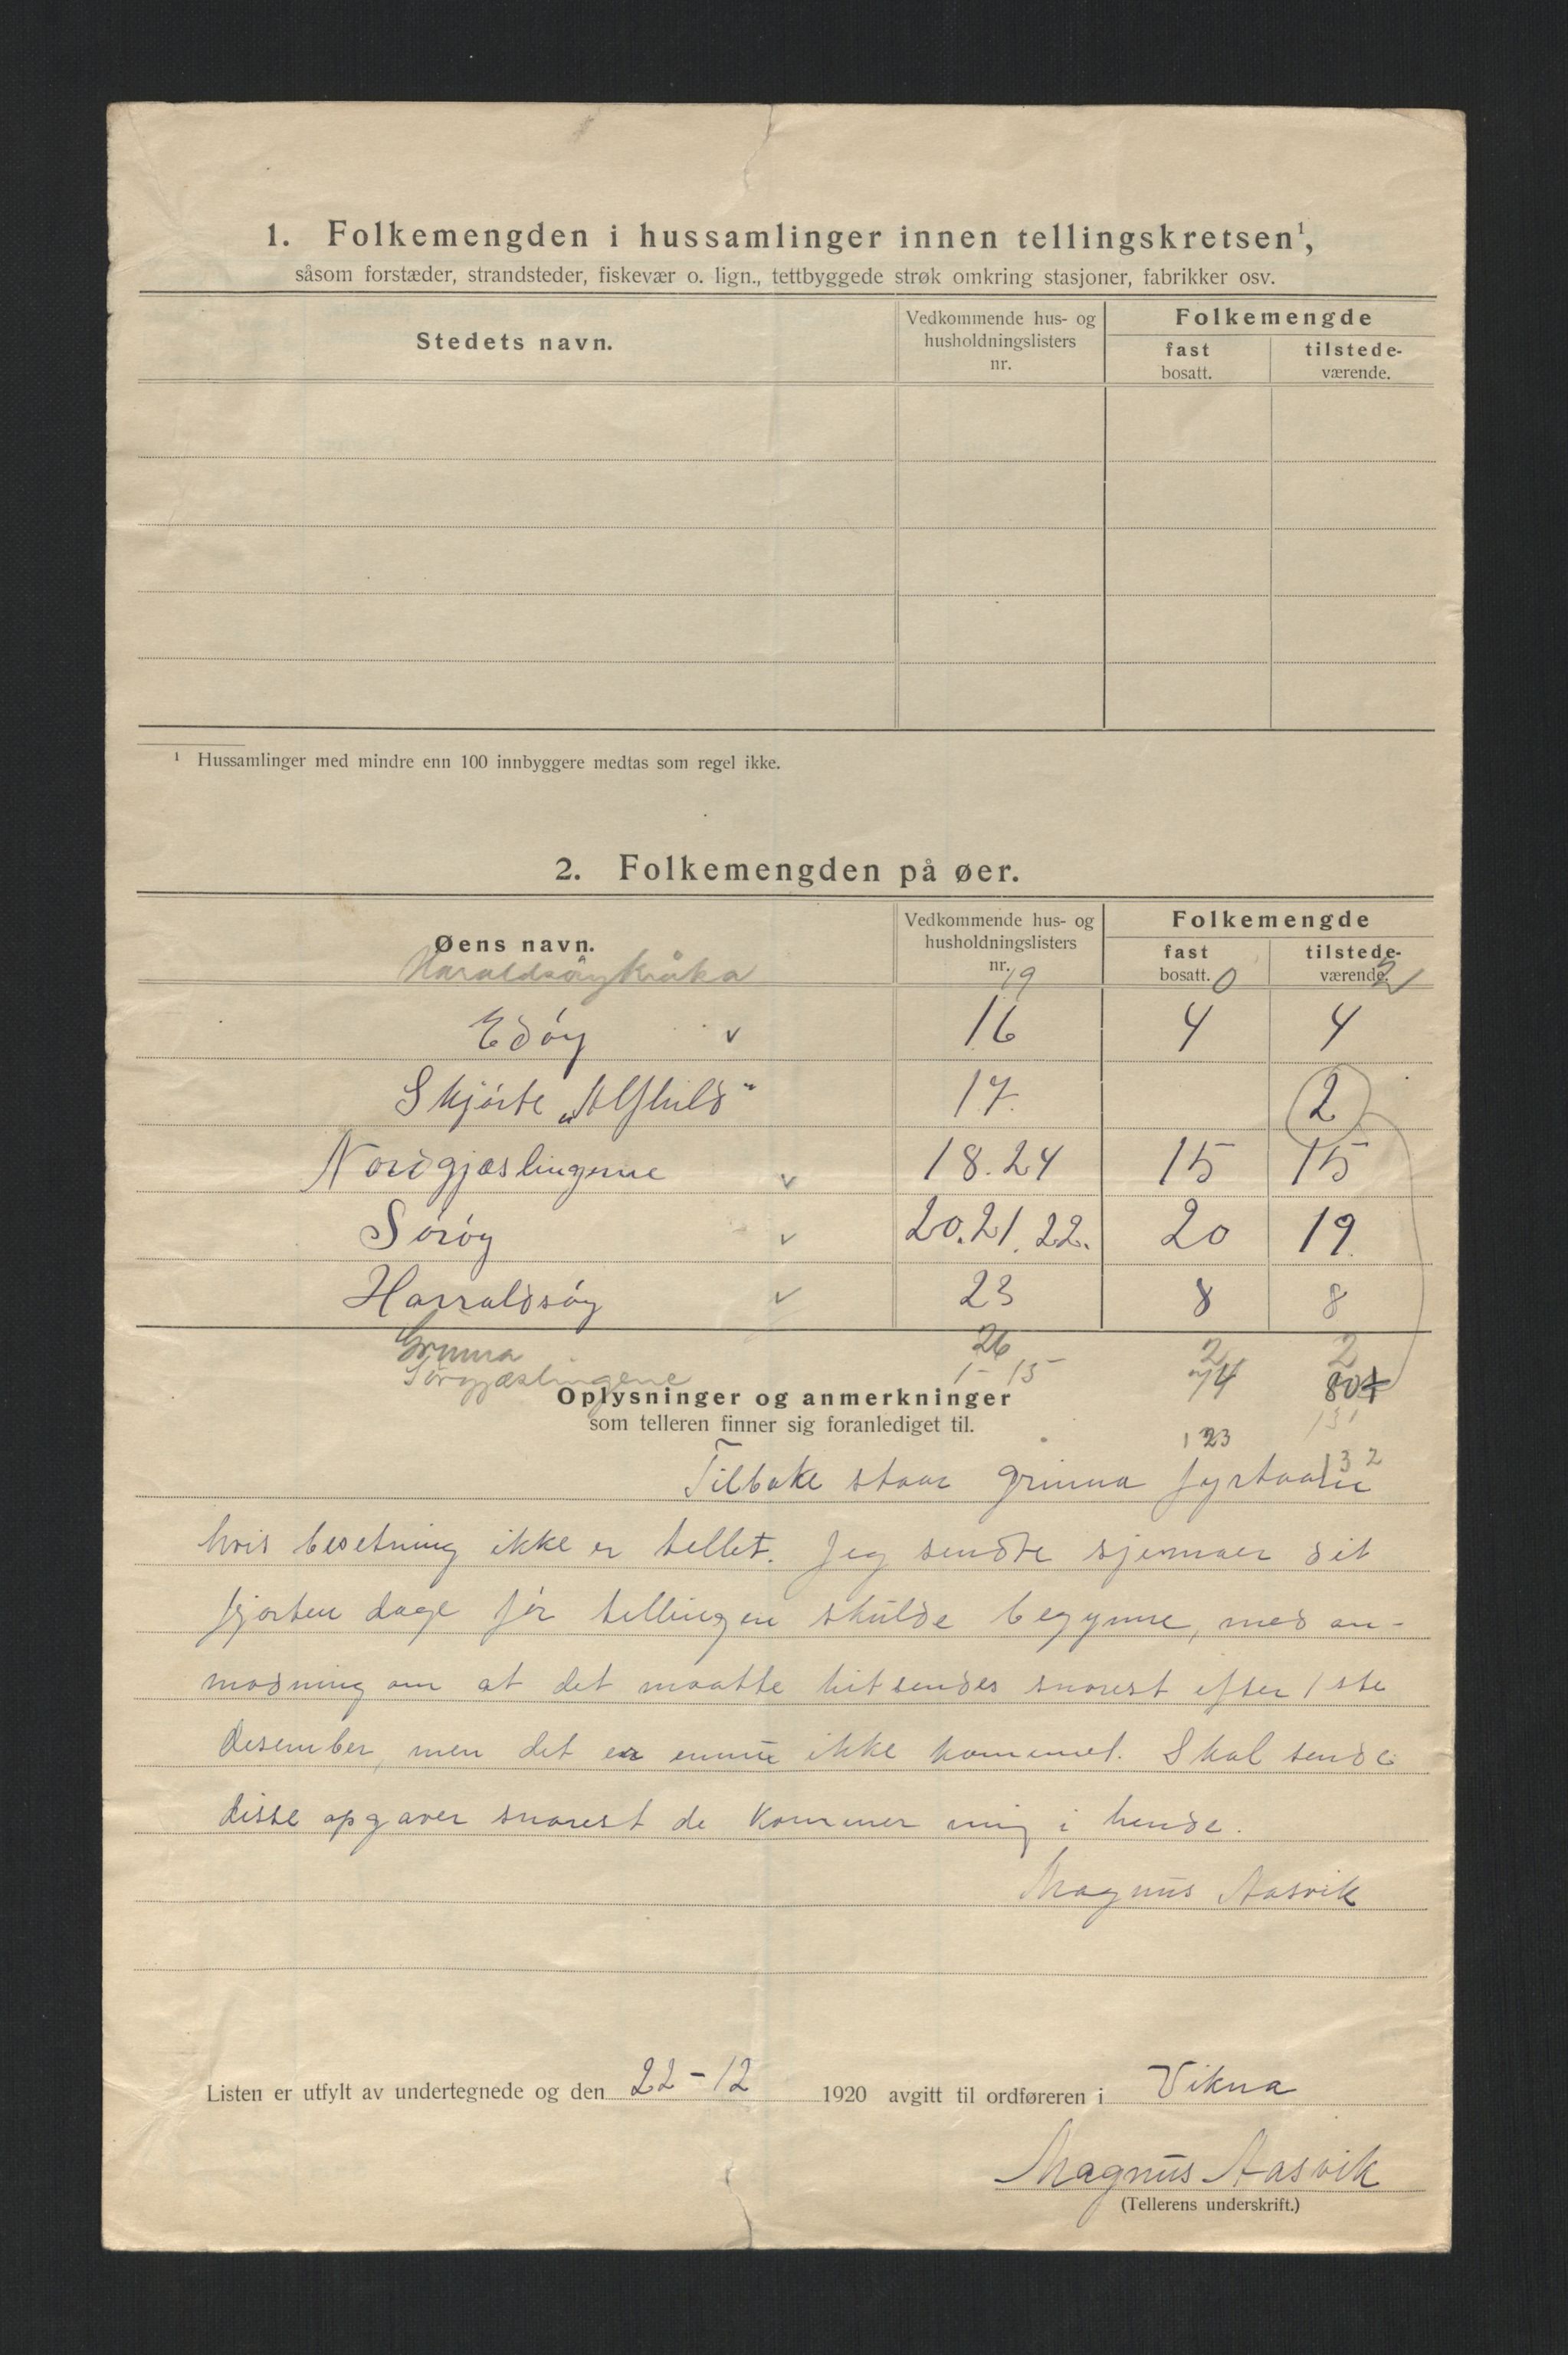 1. Folkemengden i hussamlinger innen tellingskretsen¹,
såsom forstæder, strandsteder, fiskevær o. lign., tettbyggede strøk omkring stasjoner, fabrikker osv.
Stedets navn.
Vedkommende hus- og
husholdningslisters
nr.
Folkemengde
fast
bosatt.
tilstede-
værende.
¹ Hussamlinger med mindre enn 100 innbyggere medtas som regel ikke.
2. Folkemengden på øer.
Øens navn.
Vedkommende hus- og
husholdningslisters
nr.
Folkemengde
fast
bosatt.
tilstede-
værende.
Haraldsøykråka 19 0 2
Edøy v 16 4 4
Skjøite „Alfhild" 17. 2
Nordgjæslingerne v 18.24 15 15
Sørøy v 20.21.22. 20 19.
Harraldsøy v 23 8 8
Grinna 26 2 2
Sørgjæslingene 1-15 74 80
Oplysninger og anmerkninger
som telleren finner sig foranlediget til.
131
123
132
Tilbake staar Grinna fyrtaarn
hvis besetning ikke er tellet. Jeg sendte sjemaer dit
fjorten dage før tellingen skulde begynne, med an-
modning om at det maatte hitsendes snarest efter 1ste
desember, men det er ennu ikke kommet. Skal sende
disse opgaver snarest de kommer mig i hende.
Magnus Aasvik
Listen er utfylt av undertegnede og den 22-12 1920 avgitt til ordføreren i Vikna
Magnus Aasvik
(Tellerens underskrift.)